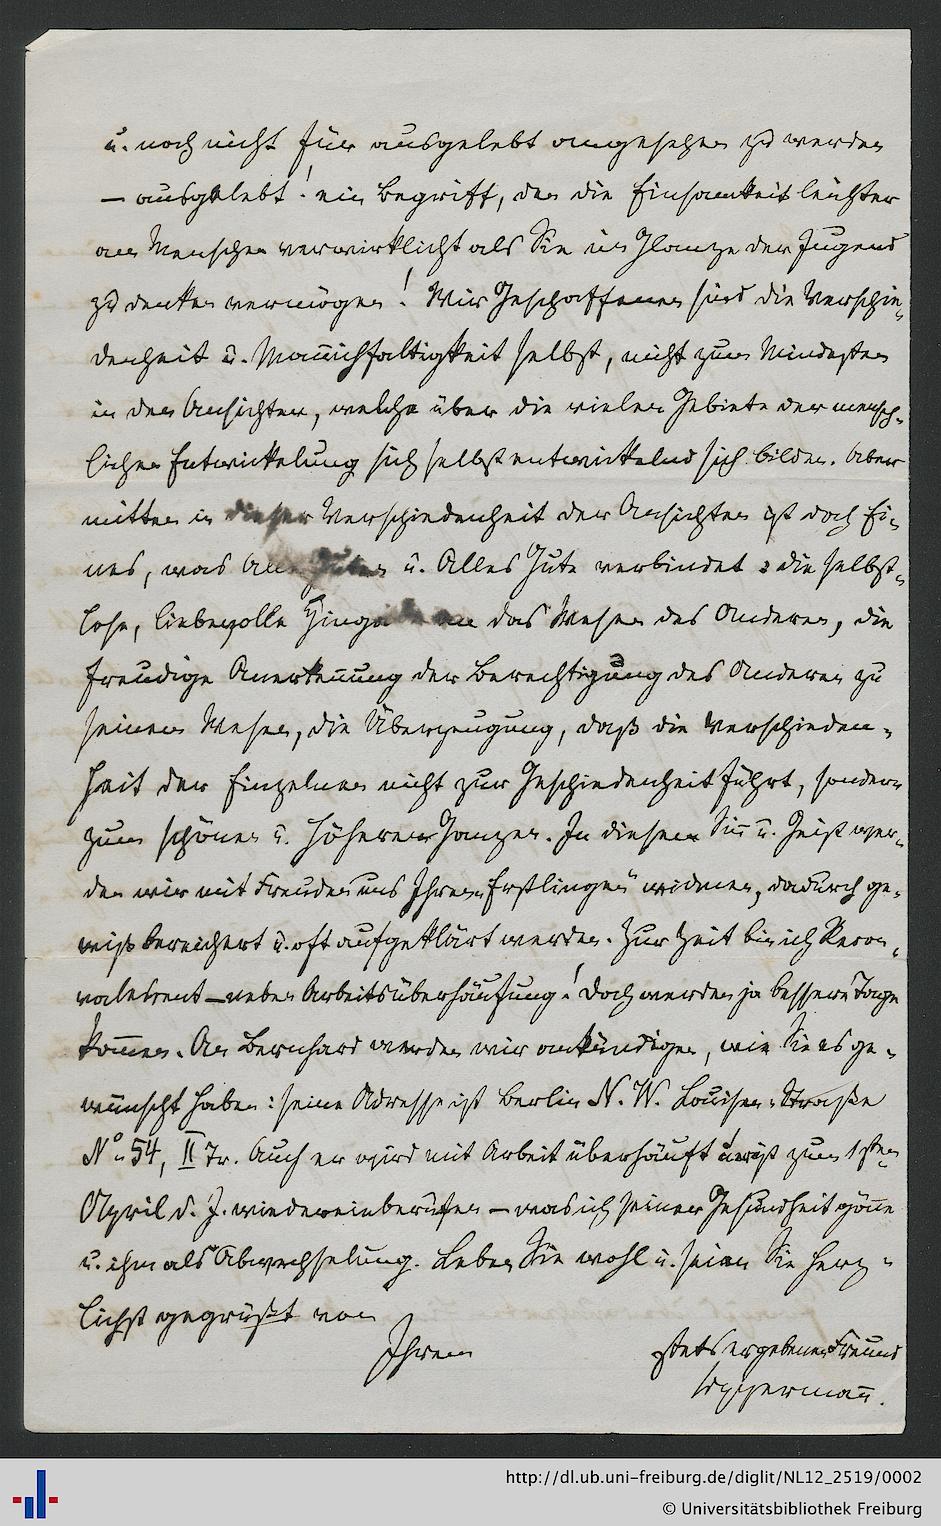 u. noch nicht für ausgelebt angesehen zu werden
— ausgelebt! ein Begriff, den die Einsamkeit leichter
am Menschen verwirklicht als Sie im Glanze der Jugend
zu denken vermögen! Wir Geschaffenen sind die Verschie-
denheit u. Mannichfaltigkeit selbst, nicht zum Mindesten
in den Ansichten, welche über die vielen Gebiete der mensch-
lichen Entwickelung sich selbst entwickelnd sich bilden. Aber
mitten in dieser Verschiedenheit der Ansichten ist doch Ei-
nes, was alle Guten u. Alles Gute verbindet: die selbst-
lose, liebevolle Hingabe an das Wesen des Anderen, die
freudige Anerkennung der Berechtigung des Anderen zu
seinem Wesen, die Überzeugung, daß die Verschieden-
heit der Einzelnen nicht zur Geschiedenheit führt, sondern
zum schönen u. höheren Ganzen. In diesem Sinn u. Geist wer-
den wir mit Freuden uns Ihren „Erstlingen“ widmen, dadurch ge-
wiß bereichert u. oft aufgeklärt werden. Zur Zeit bin ich Recon-
valescent — neben Arbeitsüberhäufung! Doch werden ja bessere Tage
kommen. An Bernhard werden wir ankündigen, wie Sie es ge-
wünscht haben: seine Adresse ist Berlin N. W. Louisen-Straße
No. 54, II Tr. Auch er wird mit Arbeit überhäuft u. ist zum 1sten
April d. J. wiedereinberufen — was ich seiner Gesundheit gönne
u. ihm als Abwechselung. Leben Sie wohl u. seien Sie herz-
lichst gegrüßt von
Ihrem stets ergebenen Freund
http://dl.ub.uni-freiburg.de/diglit/NL12_2519/0002
© Universitätsbibliothek Freiburg